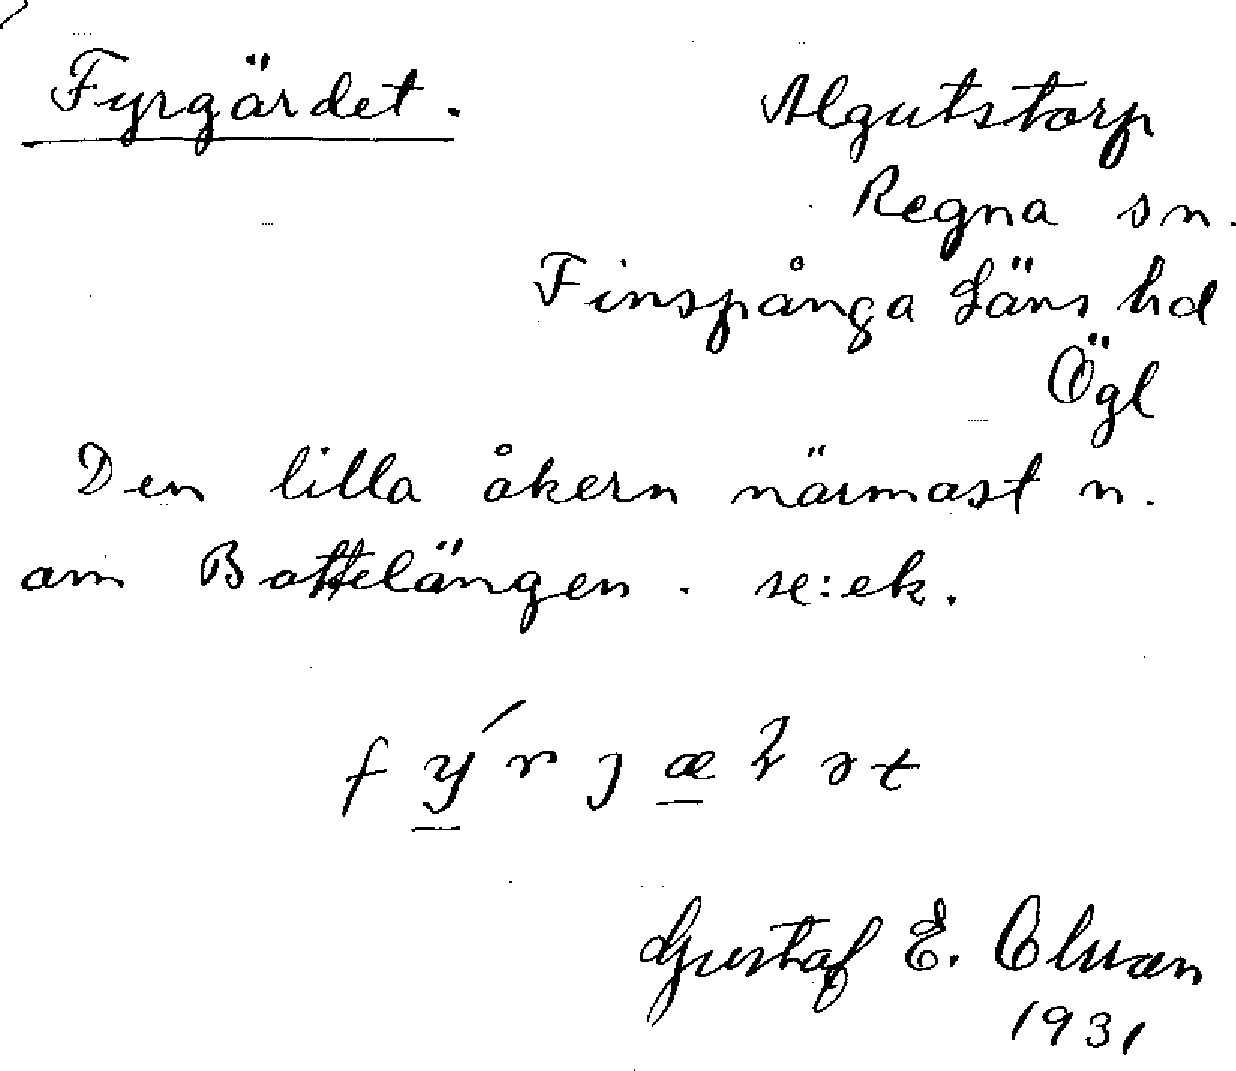 Fyrgärdet.
Algutstorp
Regna sn.
Finspånga Läns hd
Ögl
Den lilla åkern närmast n.
om Bottelängen. se:ek.
Gustaf E. Olsson
1931